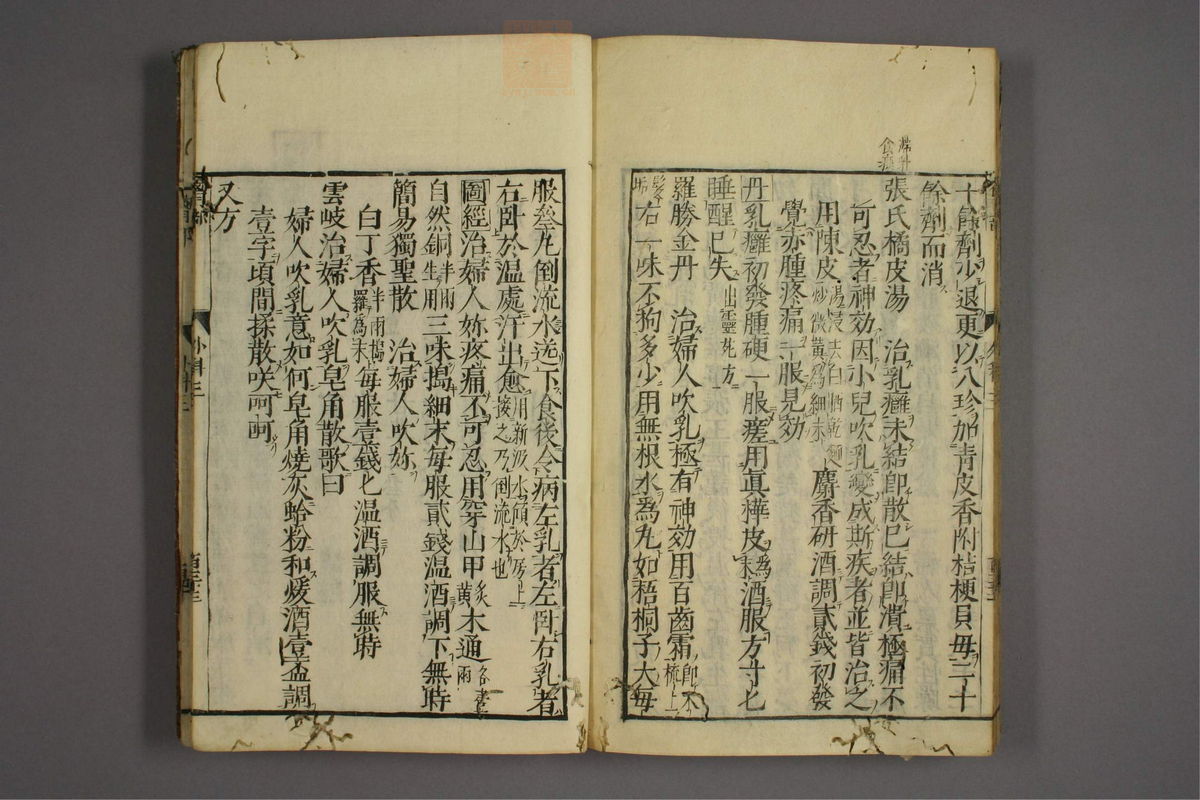 十餘劑少退更以八珍加青皮香附桔梗貝毋二十
餘劑而消
張氏橘皮湯 治乳癰未結卽散已結卽潰極痛不
可忍者神効因小兒吹乳變成斯疾者並皆治之
用陳皮湯浸去白晒乾麵炒微黃爲細末麝香研酒調貳錢初發
覺赤腫疼痛一服見効
丹乳癰初發腫硬一服瘥用眞樺皮爲末酒服方寸匕
睡醒已失出靈死方
羅勝金丹 治婦人吹乳極有神効用百齒霜卽木梳上
髮垢右一味不狗多少用無根水爲丸如梧桐子大每
服叄丸倒流水送下食後令病左乳者左卧右乳者
右卧於温處汗出愈用新汲水傾於房上接之乃倒流水也
圖經治婦人妳疼痛不可忍用穿山甲炙黃木通各壹兩
自然銅半兩生用三味搗細末每服貳錢温酒調下無時
簡易獨聖散 治婦人吹妳
白丁香半兩搗羅爲末每服壹錢匕温酒調服無時
雲岐治婦人吹乳皂角散歌曰
婦人吹乳意如何皂角燒灰蛤粉和煖酒壹盃調
壹字頃間揉散咲呵呵
又方